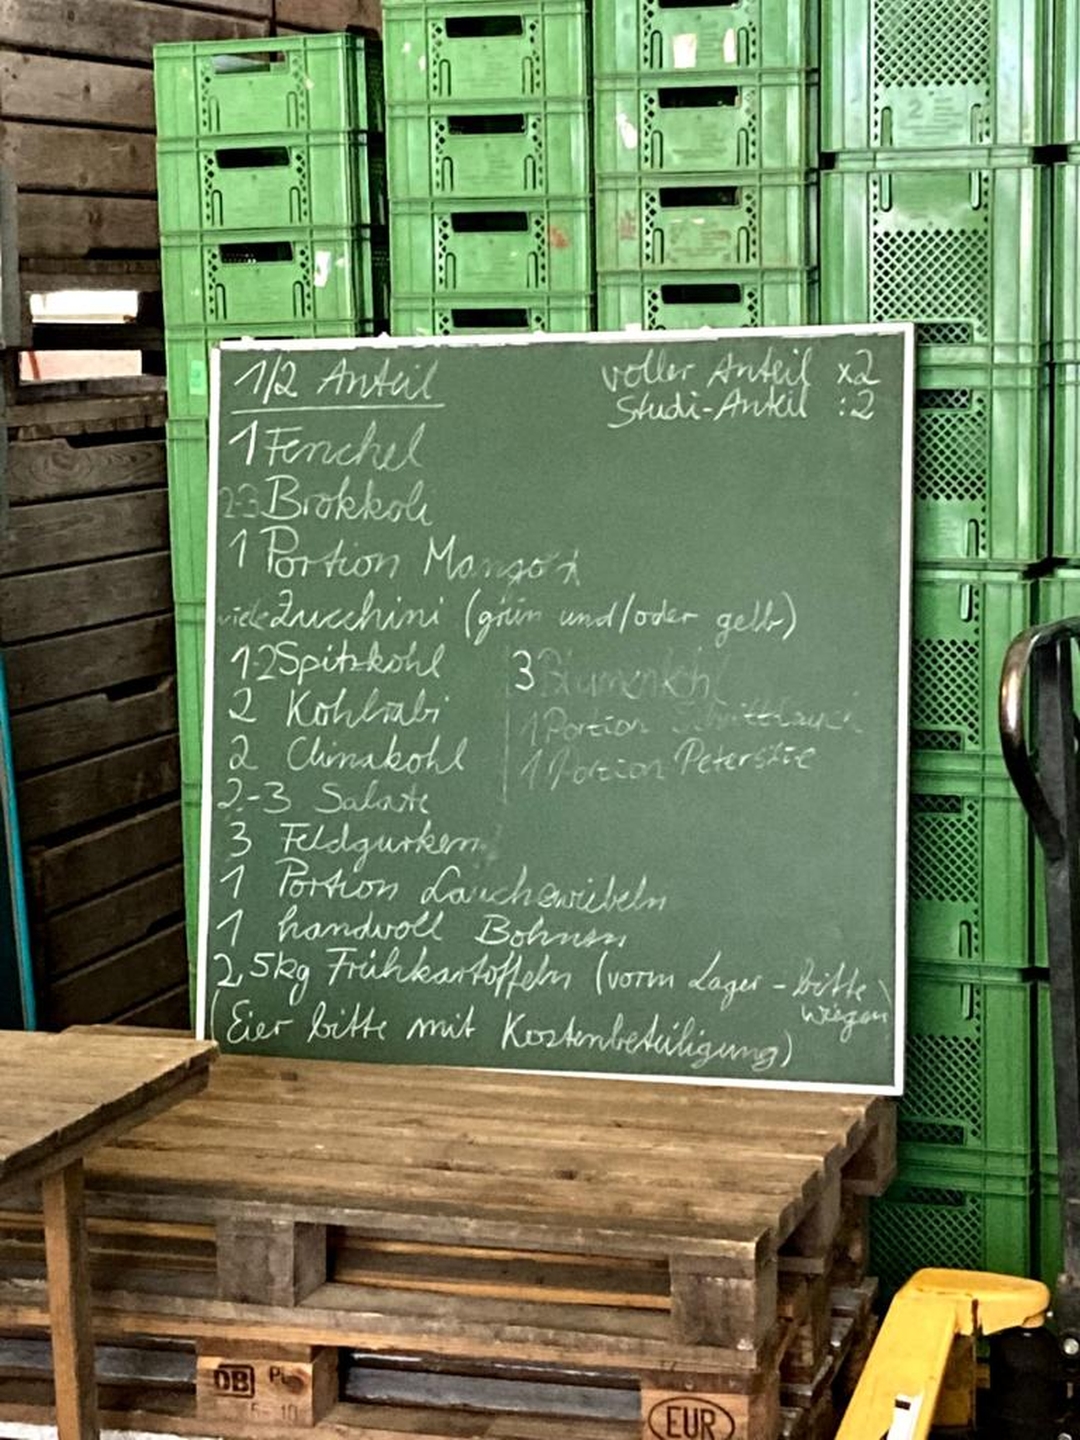 1/2 Anteil
voller Anteil x2
Studi-Anteil :2
1 Fenchel
2-3 Brokkoli
1 Portion Mangold
viele Zucchini (grün und/oder gelb)
1-2 Spitzkohl
2 Kohlrabi
2 Chinakohl
2-3 Salate
3 Feldgurken
1 Portion Lauchzwiebeln
1 handvoll Bohnen
2,5kg Frühkartoffeln (vorm Lager - bitte
wiegen)
(Eier bitte mit Kostenbeteiligung)
3 Blumenkohl
1 Portion Schnittlauch
1 Portion Petersilie
DB
EUR